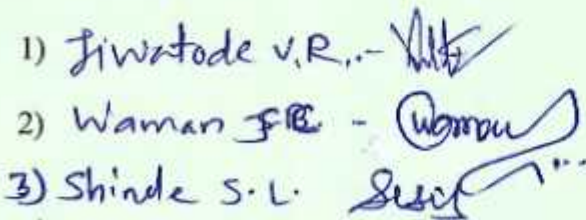 1) Jiwatode V.R.-
2) Waman - Waman
3) Shinde S.L.